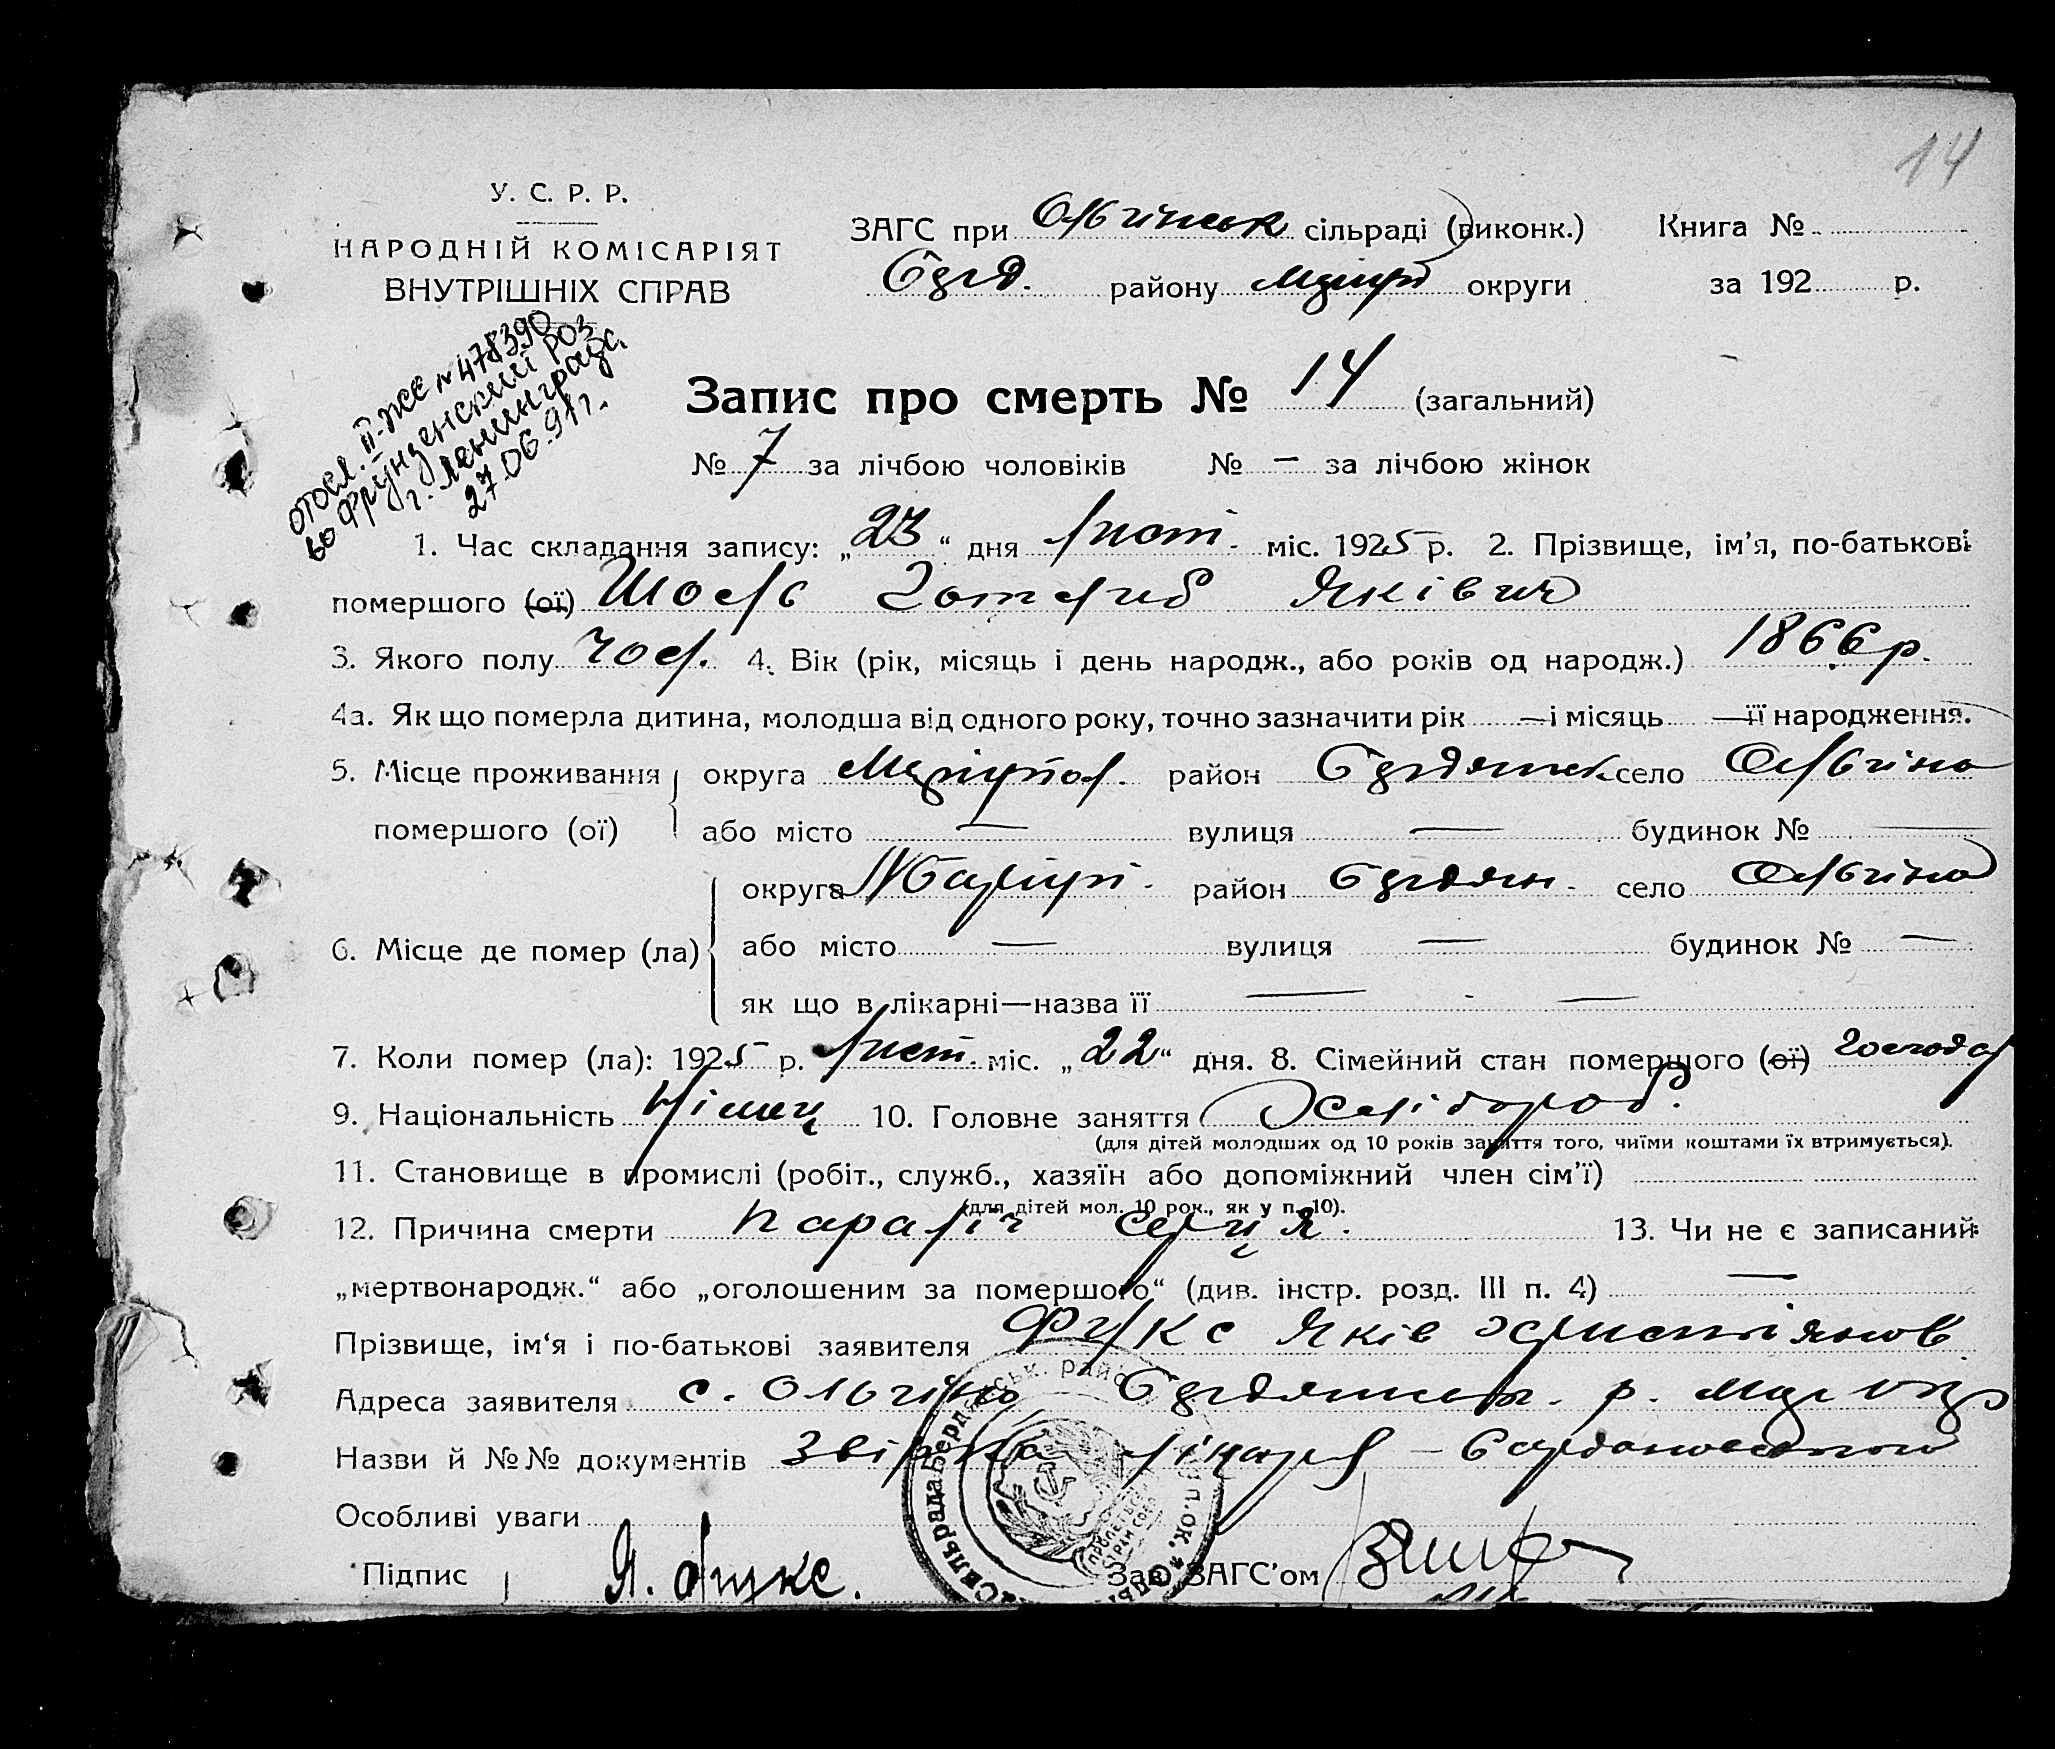 14
У. С. Р. Р.
НАРОДНІЙ КОМІСАРІЯТ
ВНУТРІШНІХ СПРАВ
ЗАГС при Ольгінськ сільраді (виконк.) Книга №
Бērд. району Маріуп округи за 192 р.
отосл. II-ое № 478390
во Фрунзенский РОЗ
г. Ленинграда.
27.06.91г.
Запис про смерть № 14 (загальний)
№ 7 за лічбою чоловіків № — за лічбою жінок
1. Час складання запису: „23“ дня лист. міс. 1925 р. 2. Прізвище, ім’я, по-батькові
помершого (ої) Шоль Готлиб Яківич
3. Якого полу чол. 4. Вік (рік, місяць і день народж., або років од народж.) 1866 р.
4а. Як що померла дитина, молодша від одного року, точно зазначити рік — і місяць — її народження.
5. Місце проживання округа Маріупол. район Бердянськ село Ольгіно
помершого (ої) або місто — вулиця — будинок № —
округа Маріуп. район Бердян. село Ольгіно
6. Місце де помер (ла) або місто — вулиця — будинок № —
як що в лікарні—назва її — —
7. Коли помер (ла): 1925 р. лист. міс. „22“ дня. 8. Сімейний стан помершого (ої) господар
9. Національність Німец 10. Головне заняття Хлібороб.
(для дітей молодших од 10 років заняття того, чиїми коштами їх втримується).
11. Становище в промислі (робіт., служб., хазяїн або допоміжний член сім’ї)
(для дітей мол. 10 рок., як у п. 10).
12. Причина смерти параліч серця. 13. Чи не є записаний
„мертвонародж.“ або „оголошеним за помершого“ (див. інстр. розд. III п. 4) —
Прізвище, ім‘я і по-батькові заявителя Фукс Яків Християнов
Адреса заявителя с. Ольгіно Бердянськ. р. Маріуп
Назви й №№ документів лікаря —
Особливі уваги
Підпис Я. Фукс. Зав. ЗАГС’ом